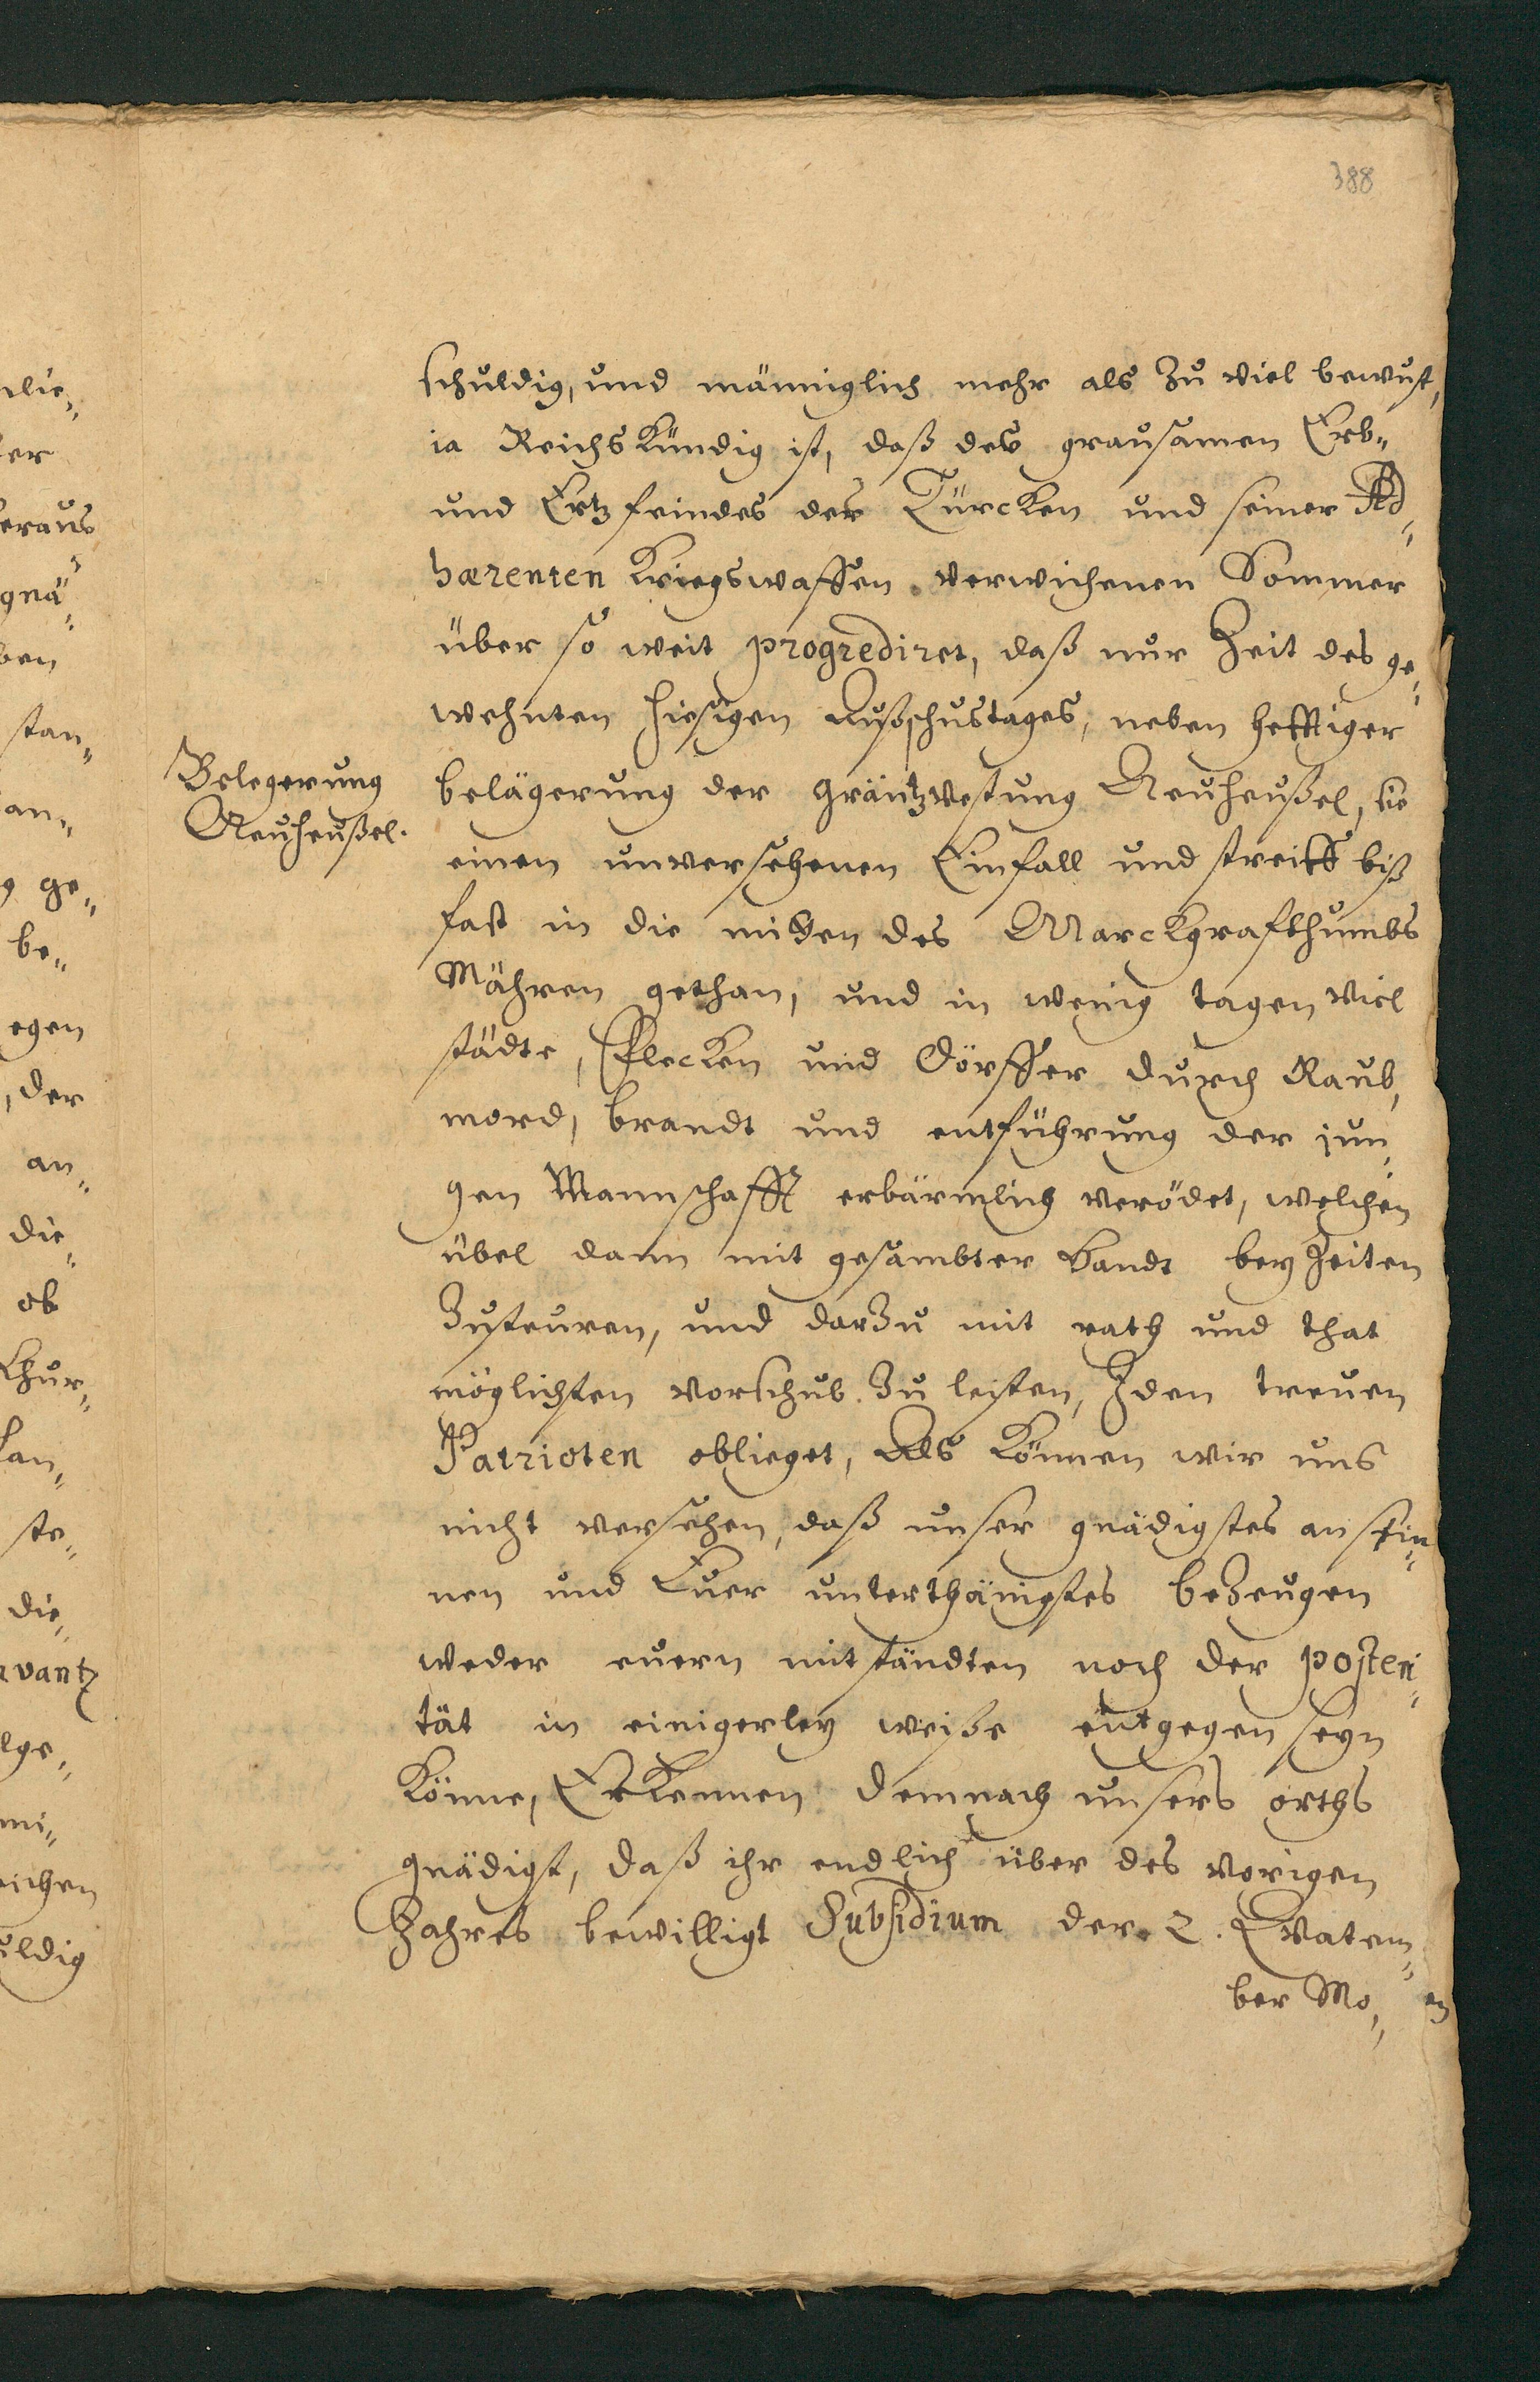 388
schuldig, und männiglich mehr als zu viel bewust,
ia Reichskündig ist, daß des grausamen Erb„
und Ertzfeindes der Türcken und seiner Ad„
hærenten Kriegswaffen verwichenen Sommer
über so weit progrediret, daß nur Zeit des ge„
wehnten hiesigen Außschustages, neben hefftiger
belägerung der Gräntzvestung Neuheußel, sie
einen unversehenen Einfall und streiff biß
fast in die mitten des Marckgrafthumbs
Mähren gethan, und in wenig tagen viel
städte, Flecken und Dörffer durch Raub,
mord, brandt und entführung der jun„
gen Mannschafft erbärmlich verödet, welchen
übel dann mit gesambter Handt bey Zeiten
Zusteuren, und darzu mit rath und that
möglichsten vorschub zu leisten, Jden treuen
Patrioten oblieget, Als können wir uns
nicht versehen, daß unser gnädigstes ansin„
nen und Euer unterthänigstes bezeugen
weder euern mitständten noch der posteri„
tät in einigerley weise entgegen seyn
könne, Erkennen demnach unsers orths
gnädigst, daß ihr endlich über des vorigen
Jahres bewilligt Subsidium der 2. Quatem„
ber Mo„
Belegerung
Neuheußel.
stan„
an„
ge„
be„
egen
, der
an„
die„
ob
Chur„
ste„
die„